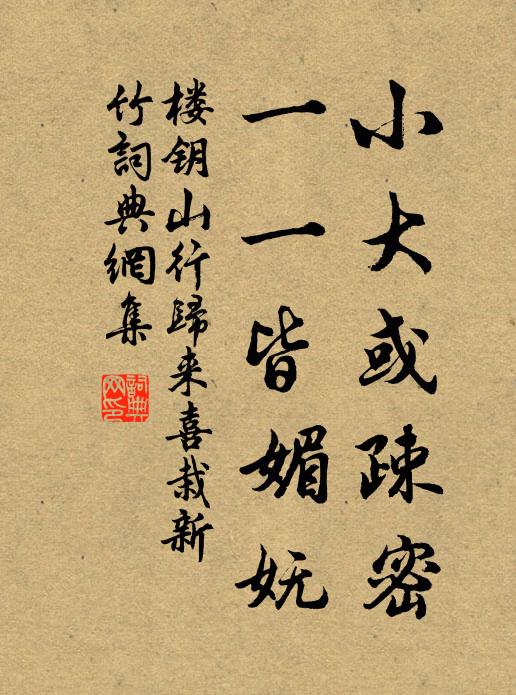 小大或疎密
一一皆媚妩
楼钥山行歸来喜栽新
竹詞典網集
詞典网印